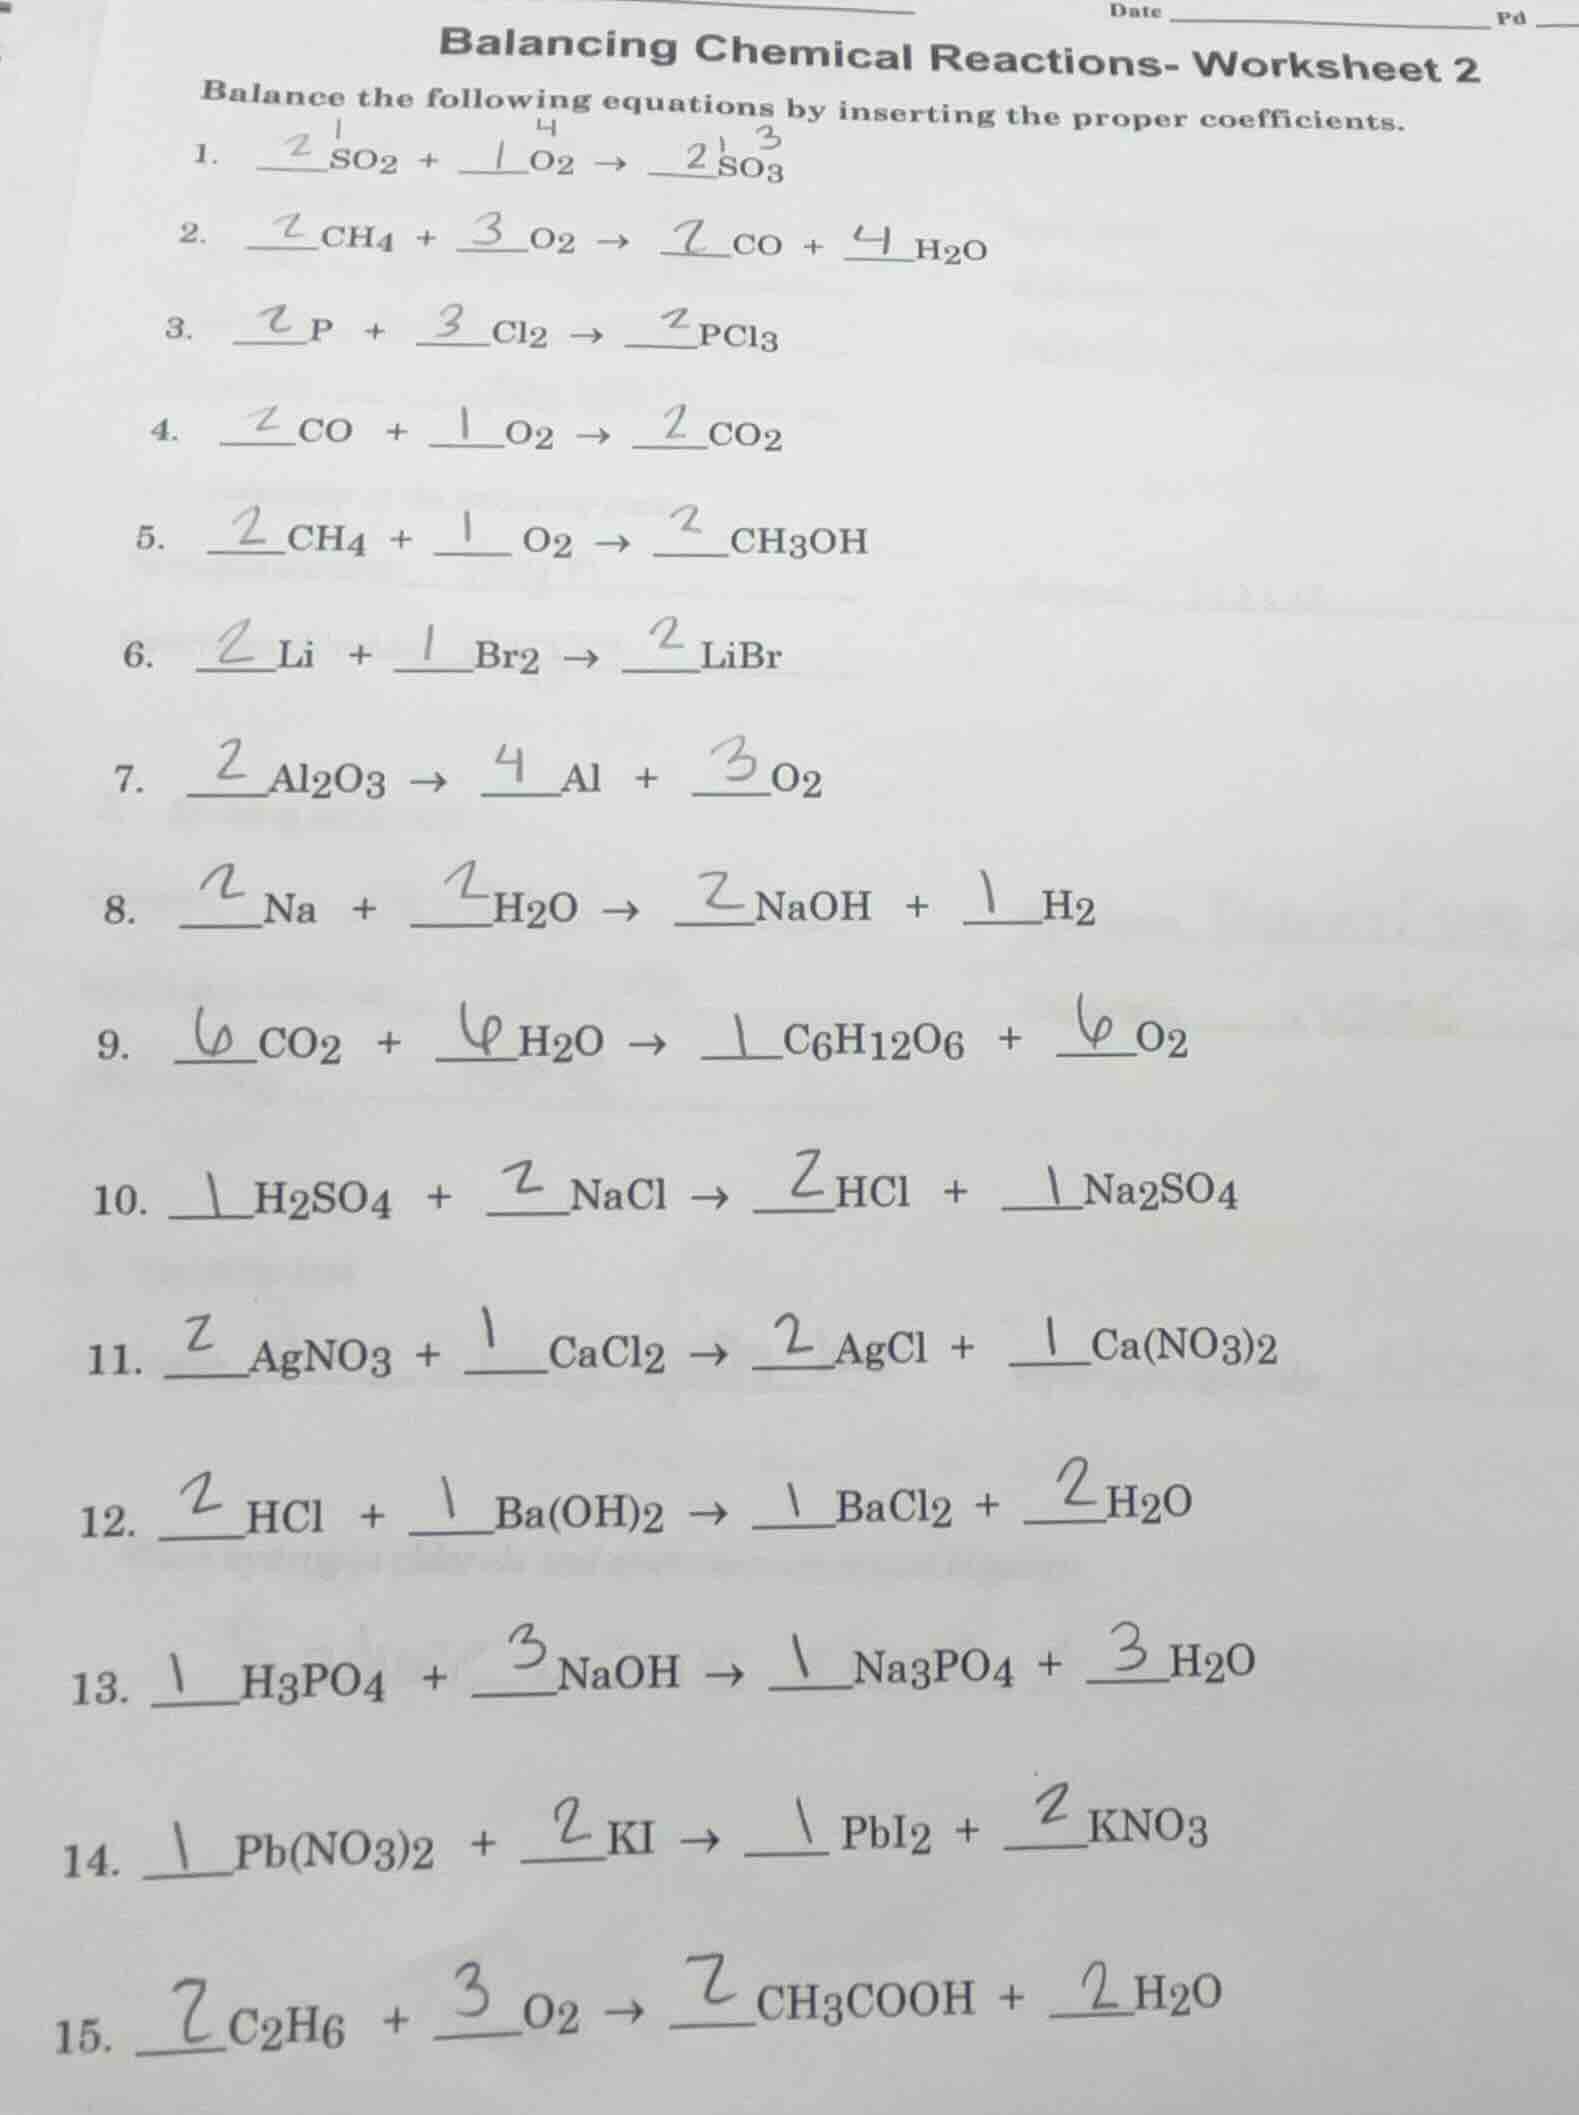 Date ______ Pd __
Balancing Chemical Reactions- Worksheet 2
Balance the following equations by inserting the proper coefficients.
1 4 1 3
1. 2 SO2 + 1 O2 → 2 SO3
2. 2 CH4 + 3 O2 → 2 CO + 4 H2O
3. 2 P + 3 Cl2 → 2 PCl3
4. 2 CO + 1 O2 → 2 CO2
5. 2 CH4 + 1 O2 → 2 CH3OH
6. 2 Li + 1 Br2 → 2 LiBr
7. 2 Al2O3 → 4 Al + 3 O2
8. 2 Na + 2 H2O → 2 NaOH + 1 H2
9. 6 CO2 + 6 H2O → 1 C6H12O6 + 6 O2
10. 1 H2SO4 + 2 NaCl → 2 HCl + 1 Na2SO4
11. 2 AgNO3 + 1 CaCl2 → 2 AgCl + 1 Ca(NO3)2
12. 2 HCl + 1 Ba(OH)2 → 1 BaCl2 + 2 H2O
13. 1 H3PO4 + 3 NaOH → 1 Na3PO4 + 3 H2O
14. 1 Pb(NO3)2 + 2 KI → 1 PbI2 + 2 KNO3
15. 2 C2H6 + 3 O2 → 2 CH3COOH + 2 H2O